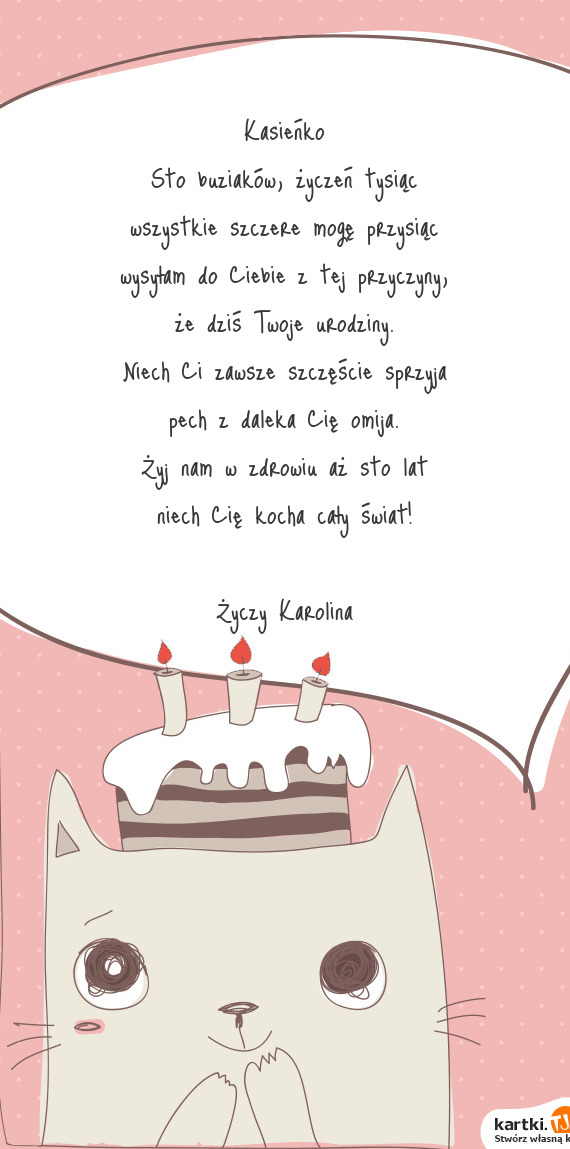 Kasieńko
Sto buziaków, życzeń tysiąc
wszystkie szczere mogę przysiąc
wysyłam do Ciebie z tej przyczyny,
że dziś Twoje urodziny.
Niech Ci zawsze szczęście sprzyja
pech z daleka Cię omija.
Żyj nam w zdrowiu aż sto lat
niech Cię kocha cały świat!
Życzy Karolina
kartki.TJ
Stwórz własną k